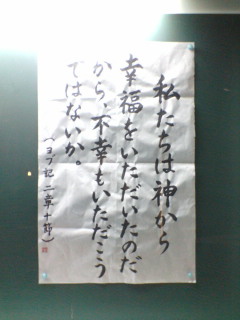 私たちは神から
幸福をいただいたのだ
から、不幸もいただこう
ではないか。
（ヨブ記 二章十節）